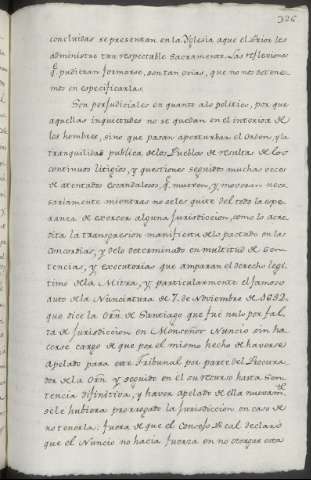 326
concluidas se presentan en la Yglesia a que el Prior les
administre tan respectable Sacramento. Las reflexiones
q.e pudieran formarse, son tan ovias, que no nos detene-
mos en especificarlas.
Son perjudiciales en quanto alo politico, por que
aquellas inquietudes no se quedan en el interior de
los hombres, sino que pasan aperturban el orden, y la
tranquilidad publica delos Pueblos de resultas de los
continuos litigios, y questiones seguidos muchas veces
de atentados escandalosos, q.e mueven, y moveran nece-
sariamente mientras no seles quite del todo la espe-
ranza de exercer alguna Jurisdiccion, como lo acre-
dita la transgresion manifiesta delo pactado en las
Concordias, y delo determinado en multitud de Sen-
tencias, y executorias que amparan el derecho legi-
timo dela Mitra, y particularmente el famoso
auto dela Nunciatura de 7. de Noviembre de 1692.
que dice la Orñ de Santiago que fué nulo por fal-
ta de Jurisdiccion en Monseñor Nuncio sin ha-
cerse cargo de que por el mismo hecho de haverse
apelado para este Tribunal por parte del Procura-
dor dela Orñ y seguido en el su curso hasta Sen-
tencia difinitiva, y haver apelado de ella nuevam.te
sele hubiera prorrogado la Jurisdiccion en caso de
no tenerla: fuera de que el Consejo R.eal declaró
que el Nuncio no hacía fuerza en no otorgar esta